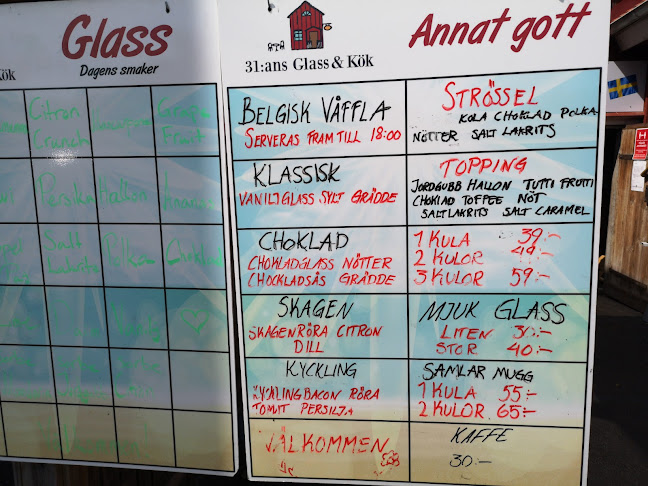 Glass
Dagens smaker
Kök
Citron
Crunch
Grape
Fruit
Persika
Hallon
Salt
Lakrits
Polka
Choklad
31:ans Glass & Kök
Annat gott
BELGISK VÅFFLA
SERVERAS FRAM TILL 18:00
STRÖSSEL
KOLA CHOKLAD POLKA
NÖTTER SALT LAKRITS
KLASSISK
VANILJGLASS SYLT GRÄDDE
TOPPING
JORDGUBB HALLON TUTTI FRUTTI
CHOKLAD TOFFEE NÖT
SALTLAKRITS SALT CARAMEL
CHOKLAD
CHOKLADGLASS NÖTTER
CHOCKLADSÅS GRÄDDE
1 KULA 39:-
2 KULOR 49:-
3 KULOR 59:-
SKAGEN
SKAGENRÖRA CITRON
DILL
MJUK GLASS
LITEN 30:-
STOR 40:-
KYCKLING
KYCKLING BACON RÖRA
TOMAT PERSILJA
SAMLAR MUGG
1 KULA 55:-
2 KULOR 65:-
VÄLKOMMEN
KAFFE
30:-